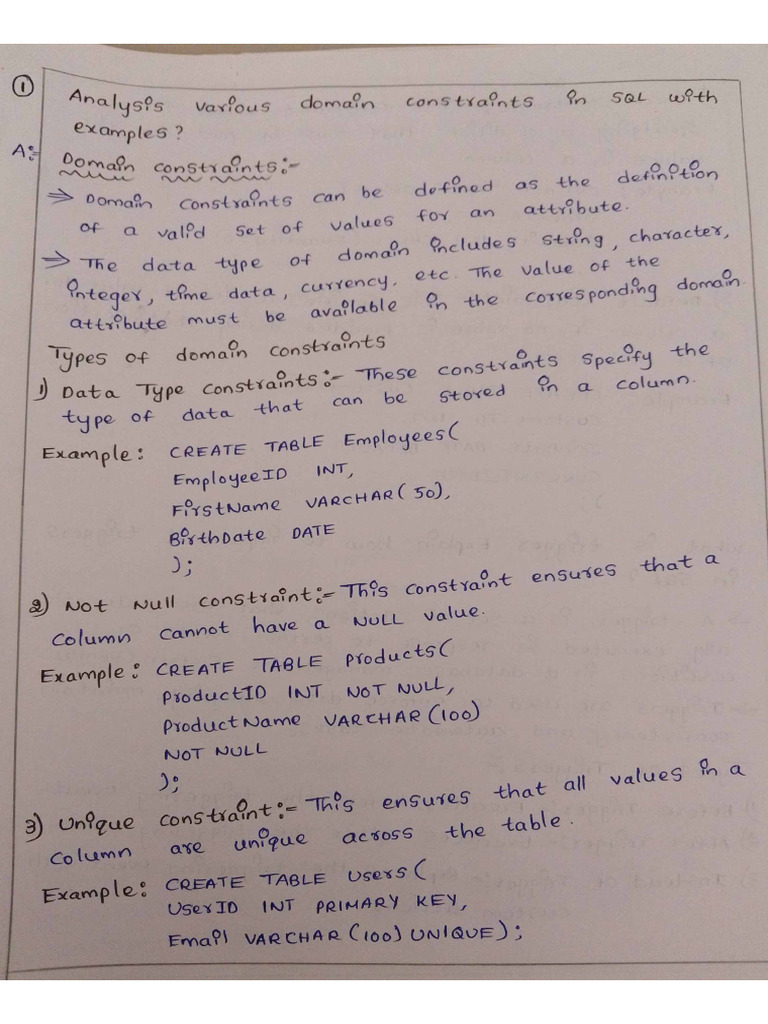 ① Analysis various domain constraints in SQL with
examples?
A:- Domain constraints:-
⇒ Domain constraints can be defined as the definition
of a valid set of values for an attribute.
⇒ The data type of domain includes string, character,
integer, time data, currency, etc. The value of the
attribute must be available in the corresponding domain.
Types of domain constraints
1) Data Type constraints:- These constraints specify the
type of data that can be stored in a column.
Example: CREATE TABLE Employees(
EmployeeID INT,
FirstName VARCHAR(50),
BirthDate DATE
);
2) Not Null constraint:- This constraint ensures that a
column cannot have a NULL value.
Example: CREATE TABLE products(
productID INT NOT NULL,
productName VARCHAR(100)
NOT NULL
);
3) Unique constraint:- This ensures that all values in a
column are unique across the table.
Example: CREATE TABLE Users(
UserID INT PRIMARY KEY,
Email VARCHAR(100) UNIQUE);